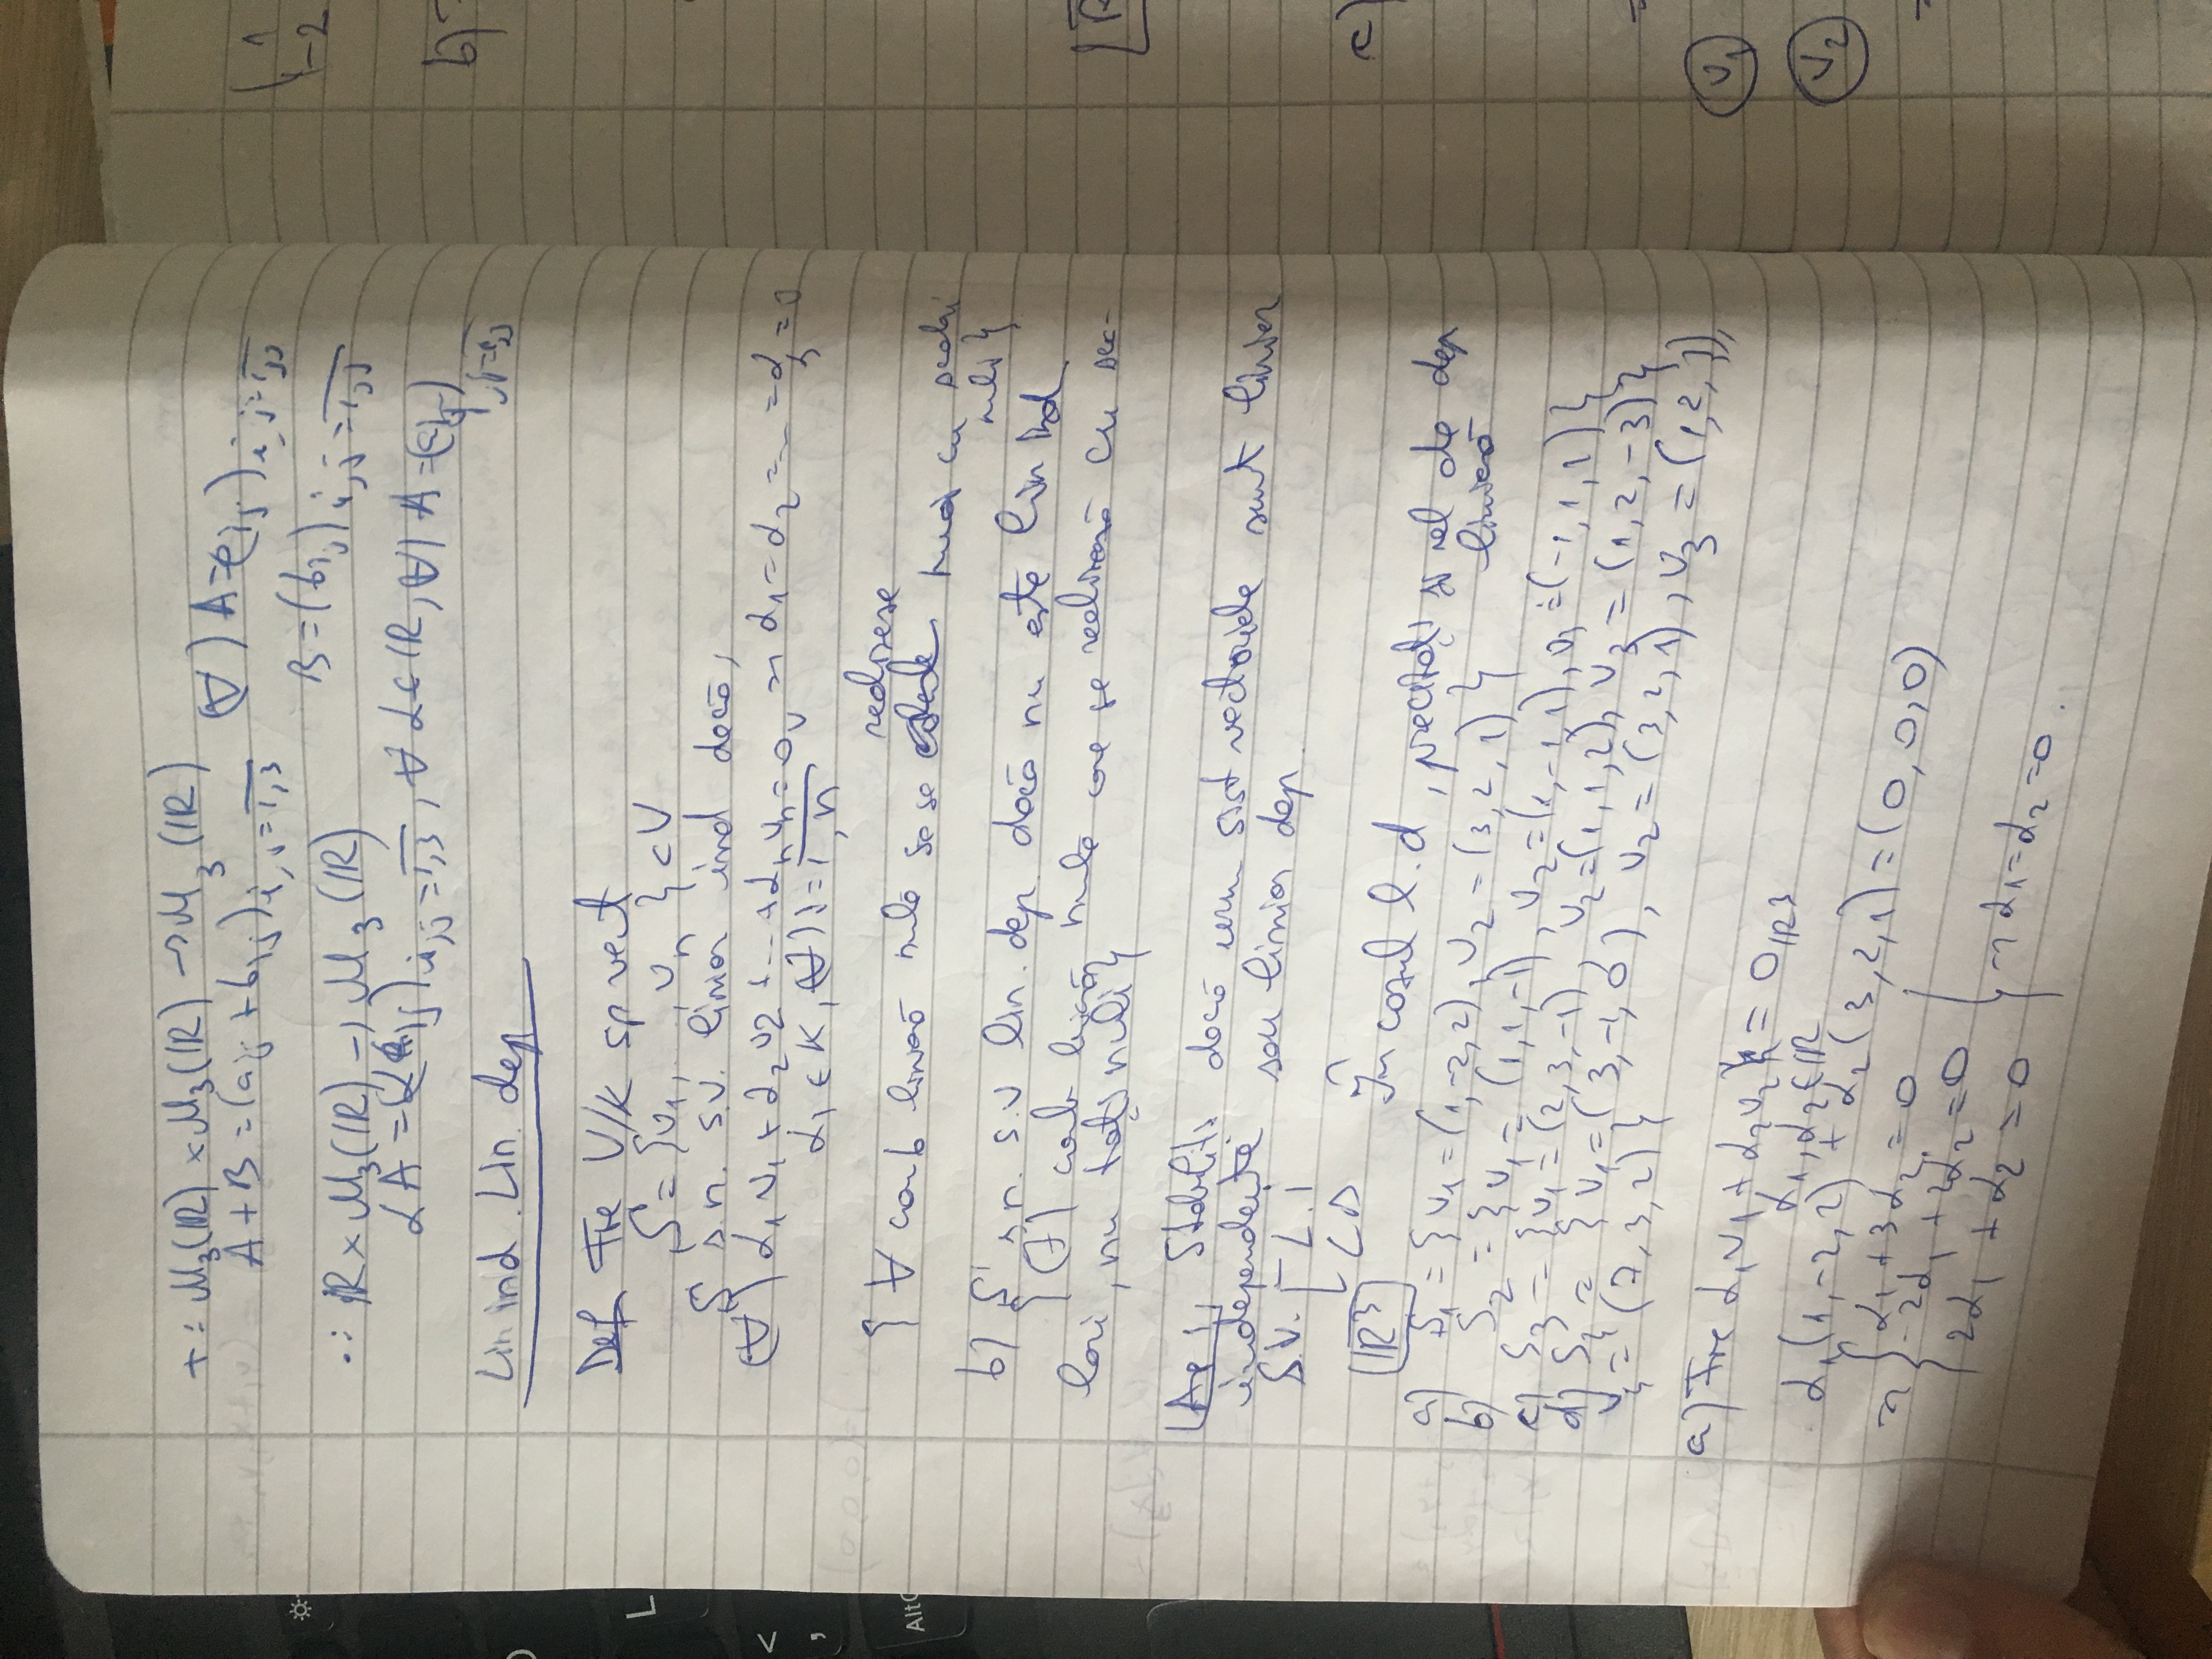 + : M₃(ℝ) × M₃(ℝ) → M₃(ℝ)
A + B = (aij + bij) i,j = 1,3 (∀) A = (aij) i,j = 1,3
B = (bij) i,j = 1,3
· : ℝ × M₃(ℝ) → M₃(ℝ)
αA = (αaij) i,j = 1,3, ∀ α ∈ ℝ, ∀) A = (aij) i,j = 1,3
Lin ind. Lin. dep
Def Fie V/K sp vect
S = {v₁, , vₙ } ⊂ V
S s.n. s.v. liniar ind dacă,
(∀) α₁v₁ + α₂v2 + ... + αₙvₙ = 0ᵥ ⇒ α₁ = α₂ = ... = αₙ = 0
αi ∈ K, (∀) i = 1,n
realizeze
{ ∀ comb liniară nulă se se numai cu scalari
nuli}
b) S s.n. s.v lin. dep dacă nu este lin ind
{ (∃) comb liniară nulă care se realizează cu sca-
lari, nu toți nuli}
Ap 1, Stabiliți dacă urm sist vectoriale sunt liniar
independente sau liniar dep.
S.V. [ L.i
LD
ℝ³ În cazul l.d, precizați și rel de dep
liniară
a) S₁ = {v₁ = (1,-2,2), v₂ = (3,2,1) }
b) S₂ = {v₁ = (1,1,-1), v₂ = (1,-1,1), v₃ = (-1,1,1) }
c) S₃ = {v₁ = (2,3,-1), v₂ = (1,1,2), v₃ = (1,2,-3)}
d) S₄ = {v₁ = (3,-1,0), v₂ = (3,2,1), v₃ = (1,2,1),
v₄ = (7,3,2)}
a) Fie α₁v₁ + α₂v₂ = 0ℝ³
α₁, α₂ ∈ ℝ
α₁(1,-2,2) + α₂(3,2,1) = (0,0,0)
⇒ { α₁ + 3α₂ = 0
-2α₁ + 2α₂ = 0
2α₁ + α₂ = 0 } ⇒ α₁ = α₂ = 0.
1
-2
b)
c)
v₁
v₂